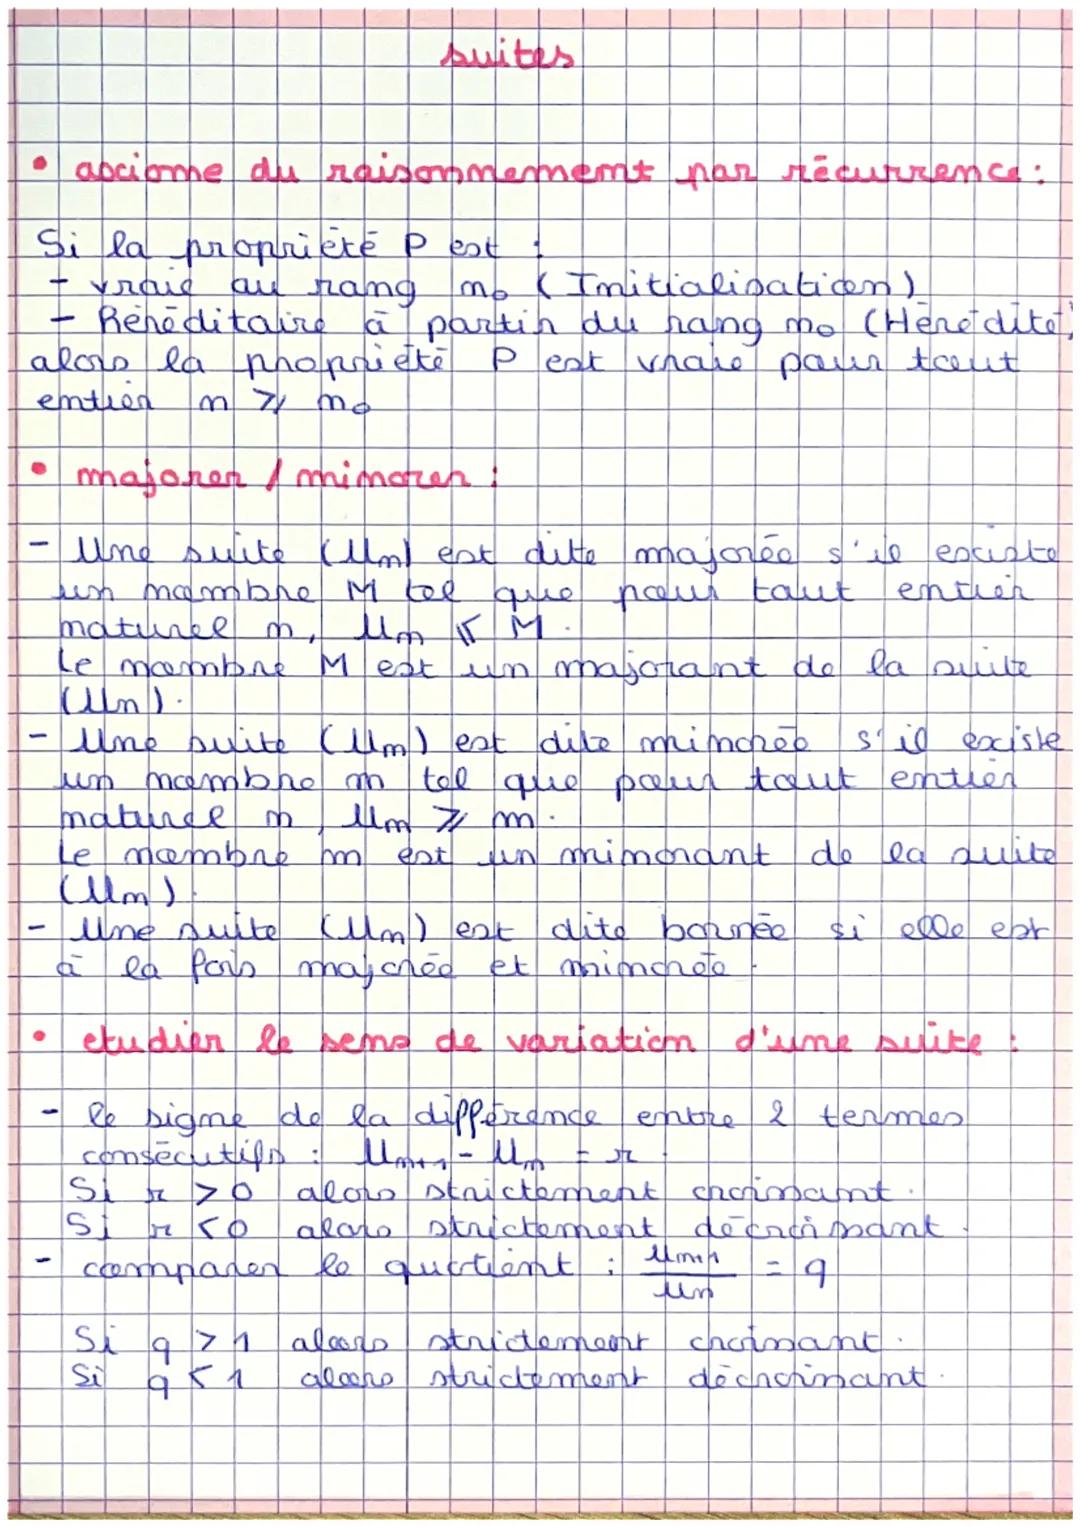 suites
• axiome du raisonnement par récurrence :
Si la propriété P est :
- vraie au rang n₀ (Initialisation)
- Héréditaire à partir du rang n₀ (Hérédité)
alors la propriété P est vraie pour tout
entier n ⩾ n₀
• majorer / minorer :
- Une suite (Un) est dite majorée s'il existe
un nombre M tel que pour tout entier
naturel n, Un ⩽ M.
Le nombre M est un majorant de la suite
(Un).
- Une suite (Un) est dite minorée s'il existe
un nombre m tel que pour tout entier
naturel n, Un ⩾ m.
Le nombre m est un minorant de la suite
(Un).
- Une suite (Un) est dite bornée si elle est
à la fois majorée et minorée.
• etudier le sens de variation d'une suite :
- le signe de la différence entre 2 termes
consécutifs : Un+1 - Un = r.
Si r > 0 alors strictement croissant.
Si r < 0 alors strictement décroissant.
- comparer le quotient : Un+1 / Un = q
Si q > 1 alors strictement croissant.
Si q < 1 alors strictement décroissant.